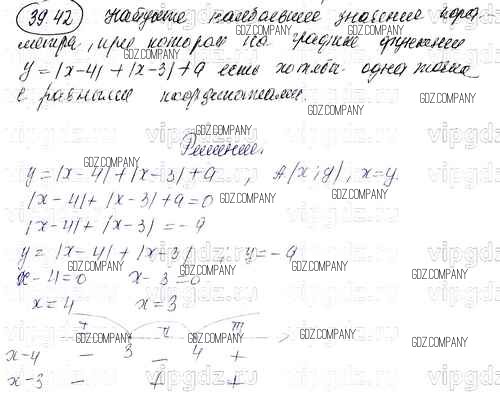 39.42 Найдите наибольшее значение пара
метра, при котором на графике функции
y = |x-4| + |x-3| + a есть хотя бы одна точка
с равными координатами.
Решение.
y = |x-4| + |x-3| + a , A(x;y), x=y.
|x-4| + |x-3| + a = 0
|x-4| + |x-3| = -a
y = |x-4| + |x-3| ; y = -a
x-4=0 x-3=0
x=4 x=3
3 4
x-4 - - +
x-3 - + +
GDZ.COMPANY
vipgdz.ru